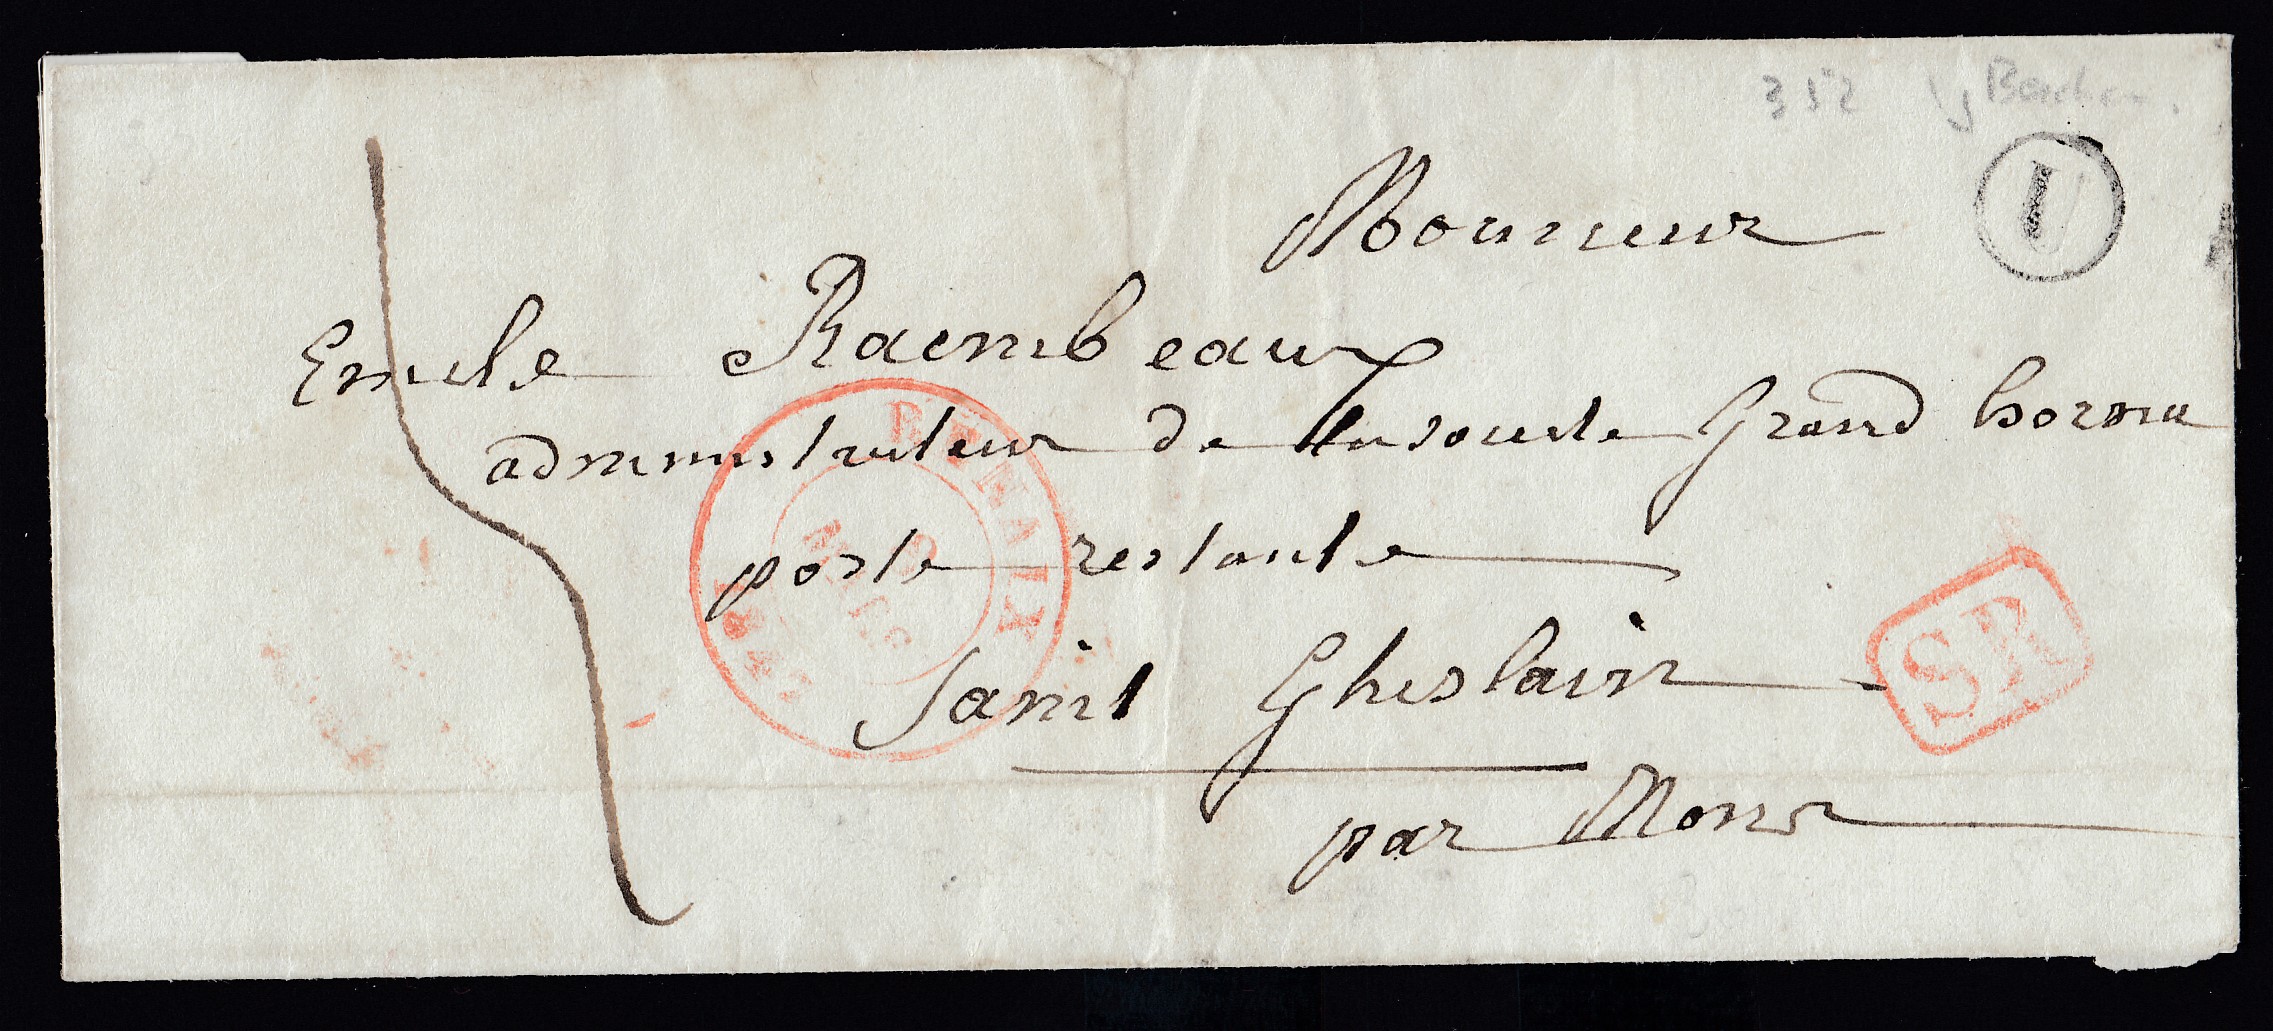 352
U
Monsieur
Emile Raembeaux
administrateur de la societe Grand hornu
poste restante
Saint Ghislain
par Mons
RENAIX
SR